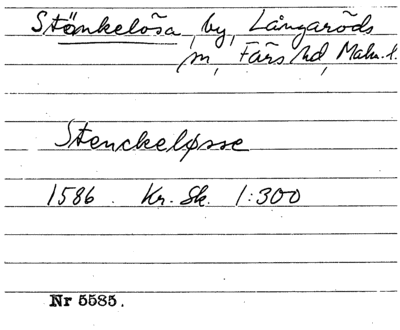 Stänkelösa, by, Långaröds
sn, Färs hd, Malm. l.
Stenckeløsse
1586. Kr. Sk. 1:300
Nr 5585.